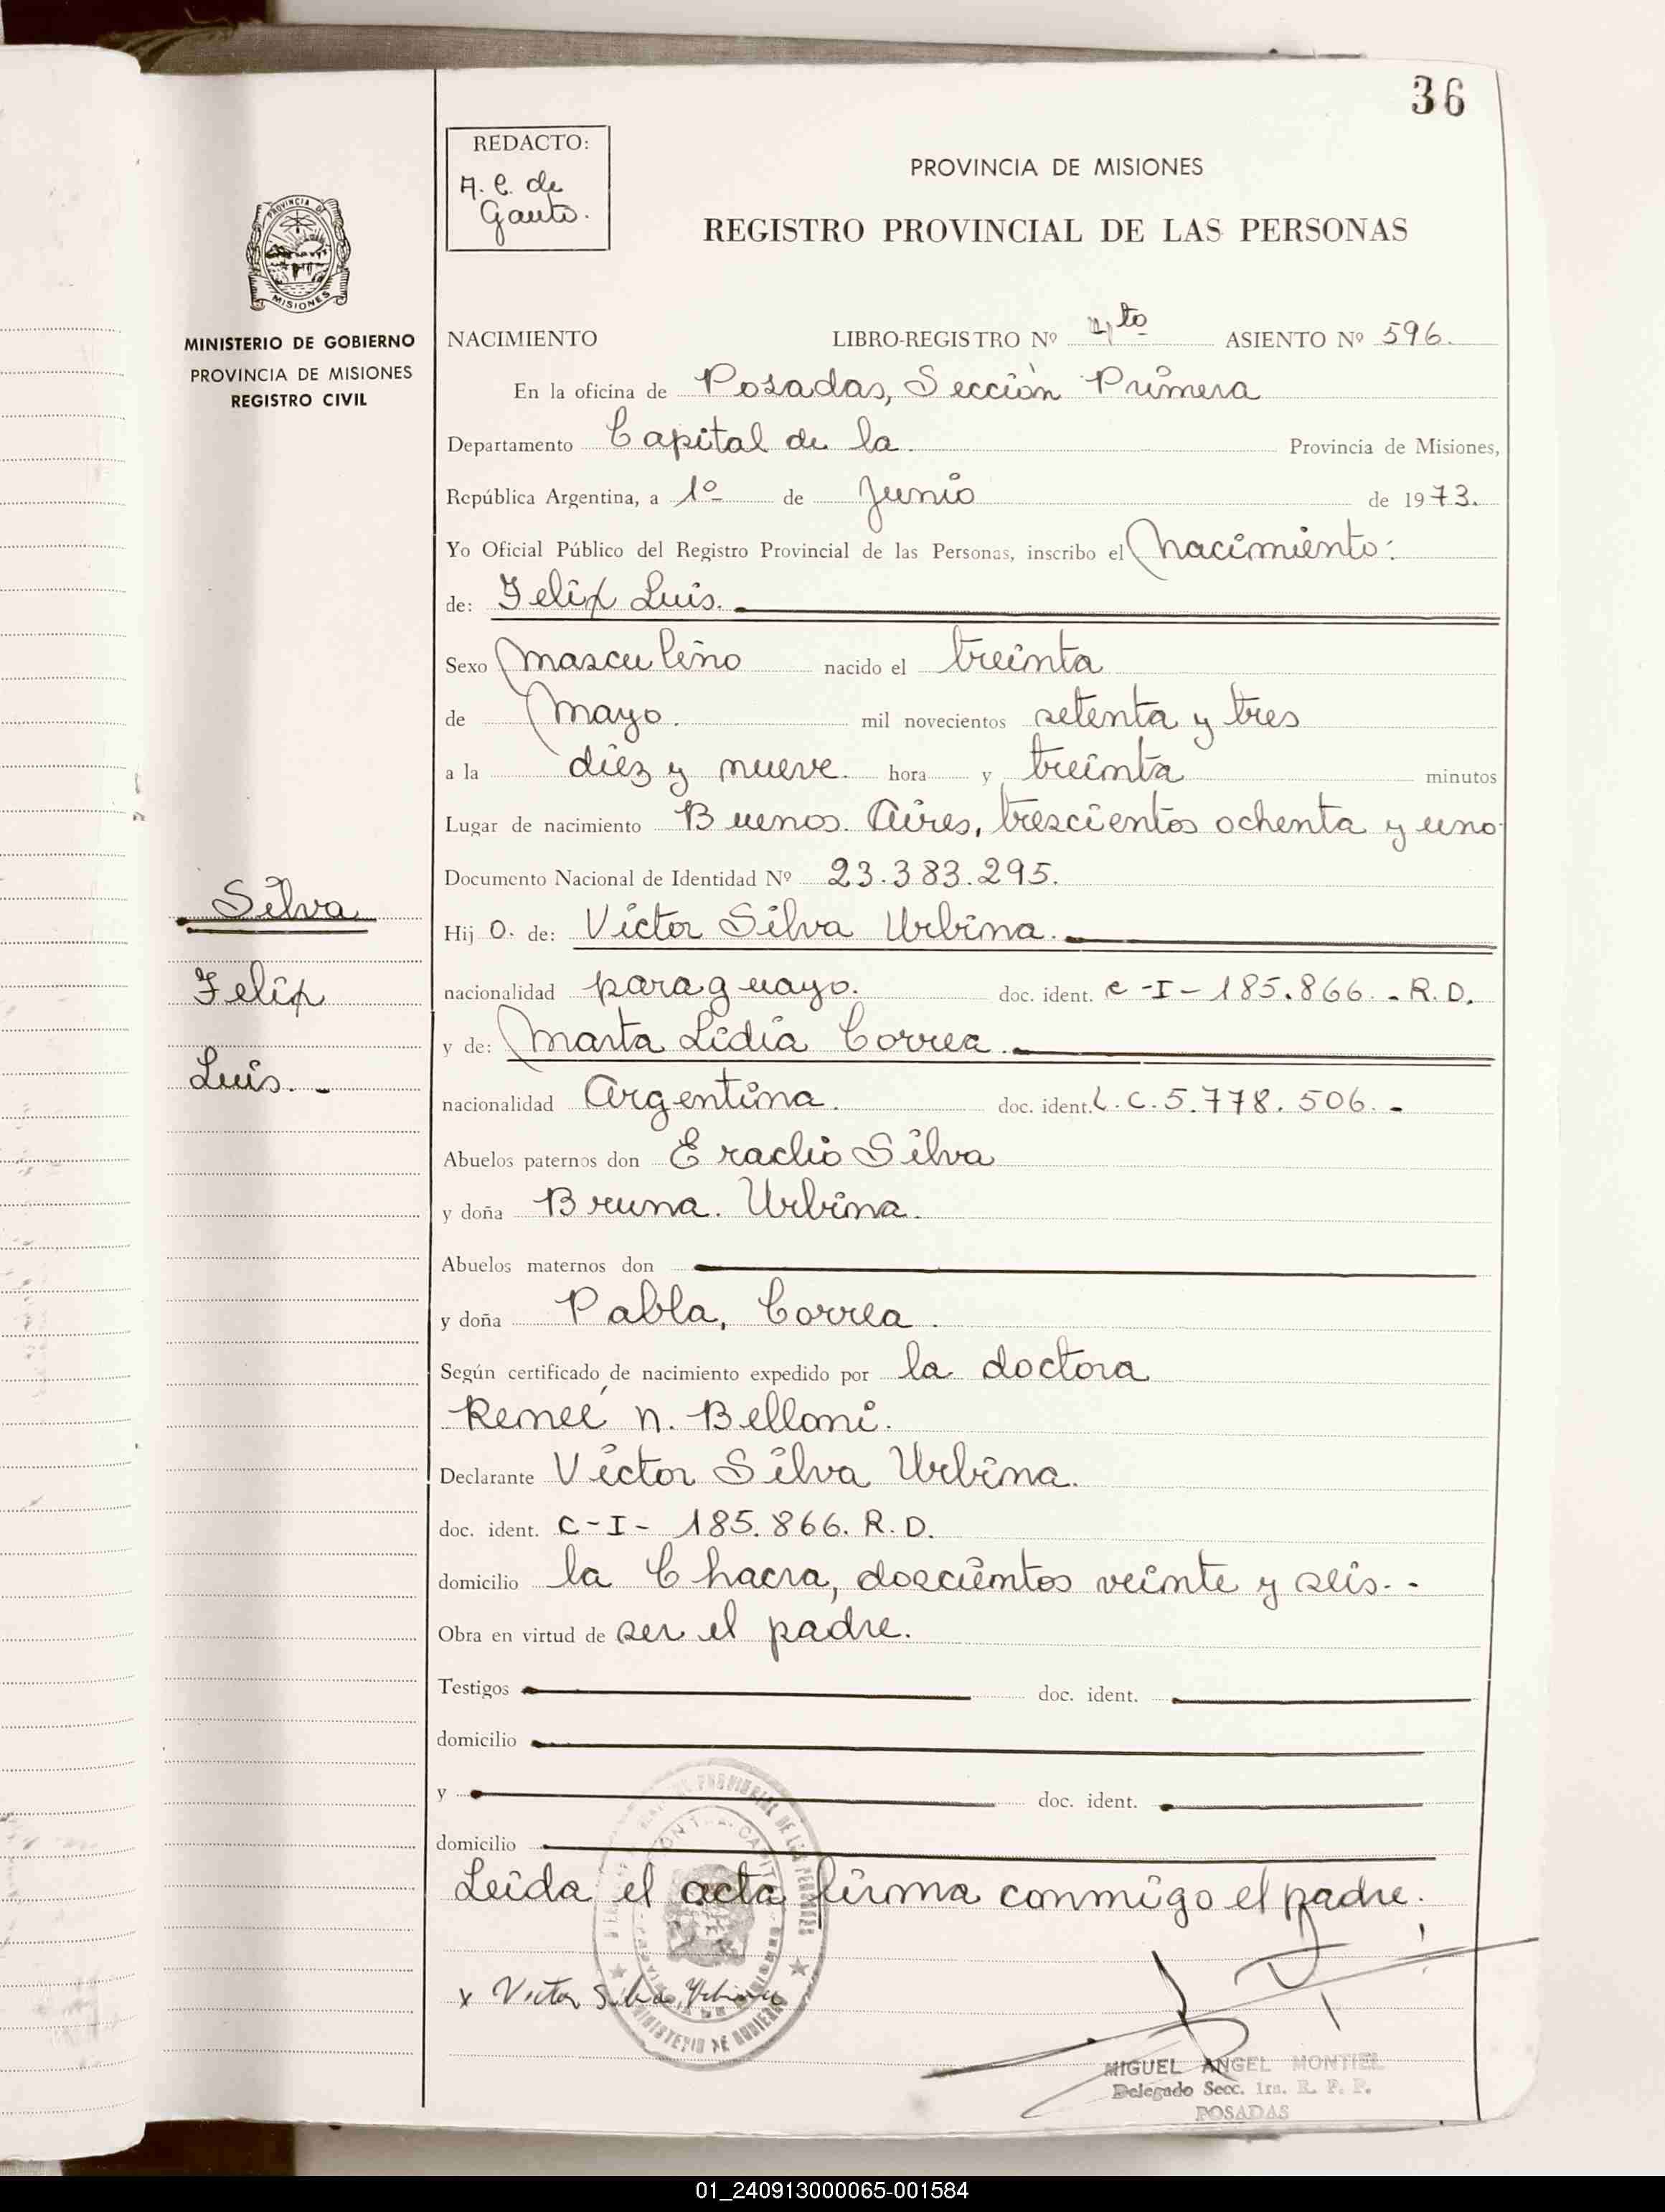 36
REDACTO:
A. C. de
Gauto.
PROVINCIA DE MISIONES
REGISTRO PROVINCIAL DE LAS PERSONAS
PROVINCIA DE
MISIONES
MINISTERIO DE GOBIERNO
PROVINCIA DE MISIONES
REGISTRO CIVIL
NACIMIENTO LIBRO-REGISTRO Nº 4to ASIENTO Nº 596.
En la oficina de Posadas, Sección Primera
Departamento Capital de la. Provincia de Misiones,
República Argentina, a 1º de Junio de 1973.
Yo Oficial Público del Registro Provincial de las Personas, inscribo el Nacimiento:
de: Felix Luis.
Sexo Masculino nacido el treinta
de Mayo. mil novecientos setenta y tres
a la diez y nueve. hora y treinta minutos
Lugar de nacimiento Buenos Aires, trescientos ochenta y uno
Documento Nacional de Identidad Nº 23.383.295.
Silva
Felix
Luis. -
Hij o. de: Victor Silva Urbina.
nacionalidad paraguayo. doc. ident. C-I-185.866.-R.D.
y de: Marta Lidia Correa.
nacionalidad Argentina. doc. ident. L.C.5.778.506.-
Abuelos paternos don Eraclio Silva
y doña Bruna. Urbina.
Abuelos maternos don
y doña Pabla, Correa.
Según certificado de nacimiento expedido por la doctora
Reneé N. Belloni.
Declarante Victor Silva Urbina.
doc. ident. C-I- 185.866. R.D.
domicilio la Chacra, doscientos veinte y seis.-
Obra en virtud de ser el padre.
Testigos doc. ident.
domicilio
y doc. ident.
domicilio
Leida el acta firma conmigo el padre.
x Victor Silva Urbina
MIGUEL ANGEL MONTIEL
Delegado Secc. 1ra. R. P. P.
POSADAS
01_240913000065-001584